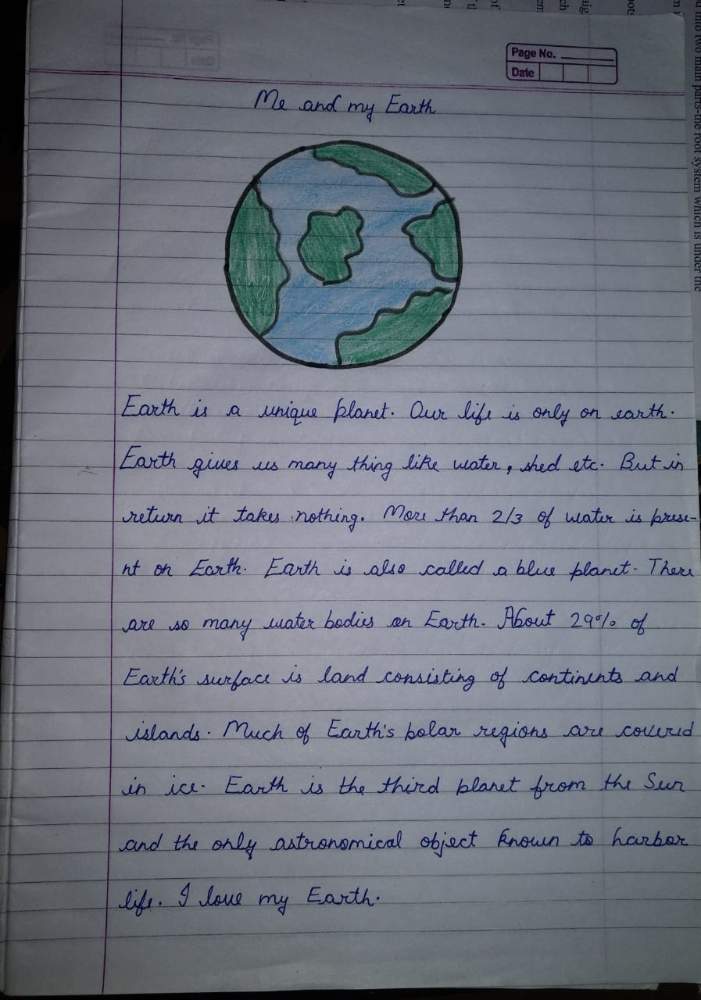 Page No.
Date
Me and my Earth
Earth is a unique planet. Our life is only on earth.
Earth gives us many thing like water, shed etc. But in
return it takes nothing. More than 2/3 of water is prese-
nt on Earth. Earth is also called a blue planet. There
are so many water bodies on Earth. About 29% of
Earth's surface is land consisting of continents and
islands. Much of Earth's polar regions are covered
in ice. Earth is the third planet from the Sun
and the only astronomical object known to harbor
life. I love my Earth.
into two main parts-the root system which is under the